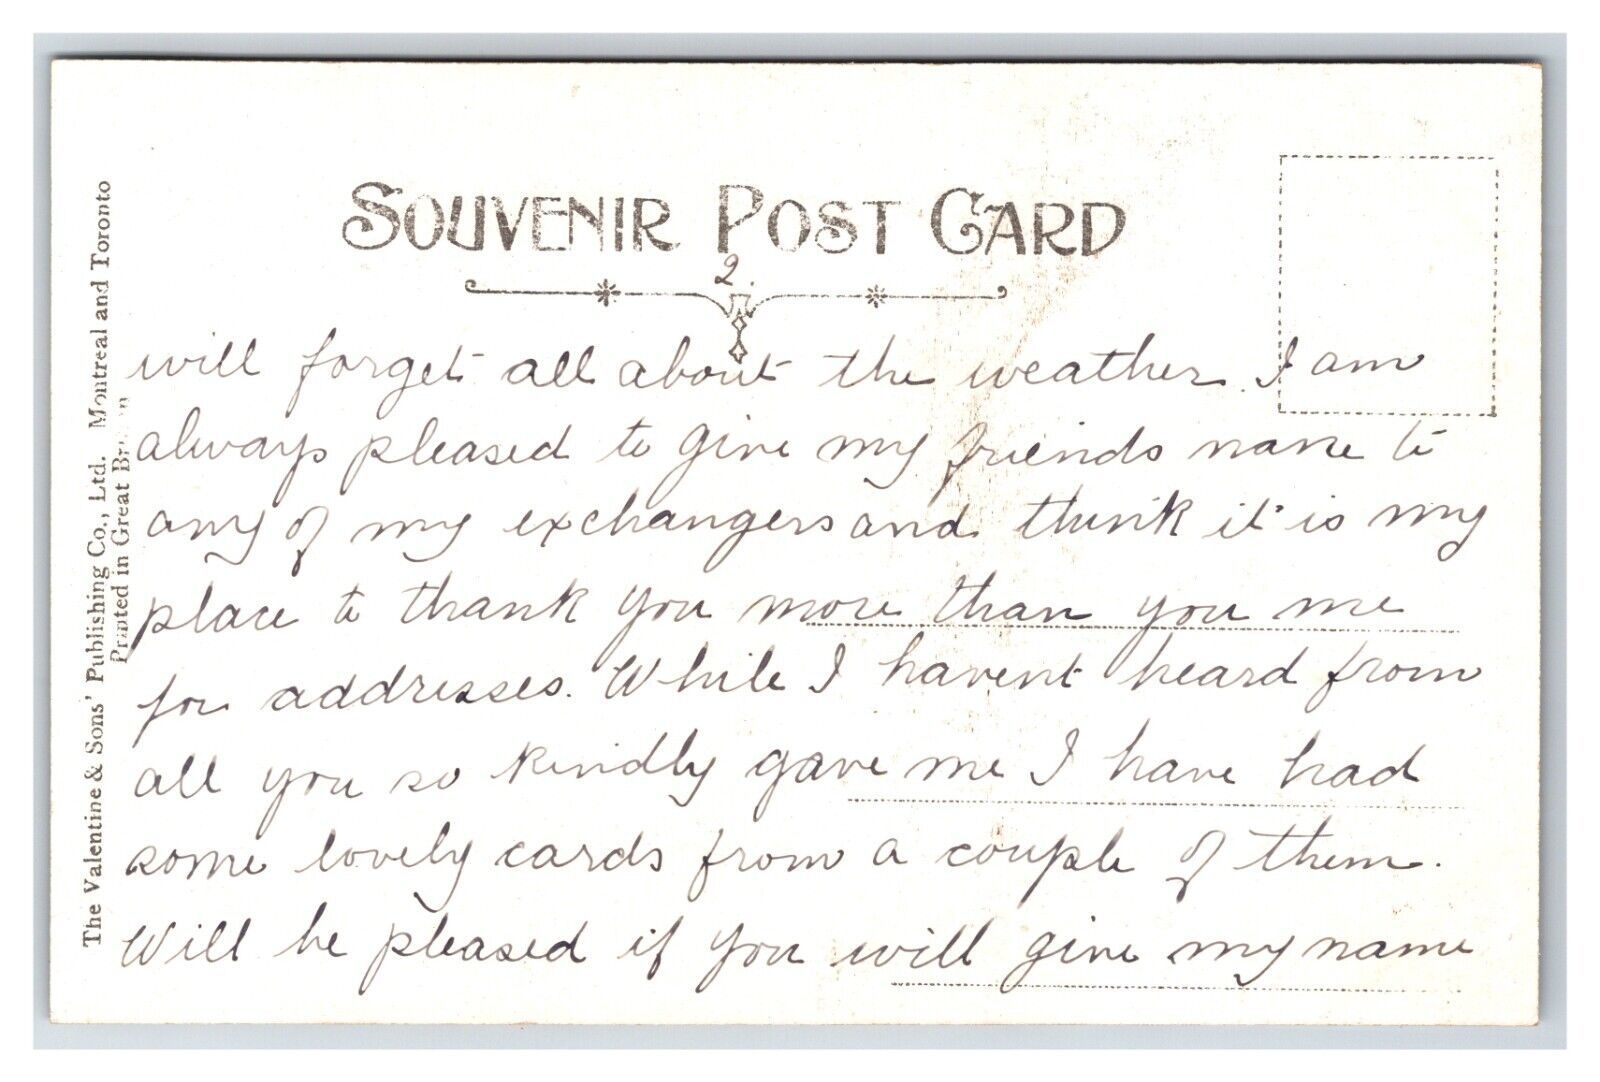 SOUVENIR POST CARD
2.
will forget all about the weather. I am
always pleased to give my friends name to
any of my exchangers and think it is my
place to thank you more than you me
for addresses. While I havent heard from
all you so kindly gave me I have had
some lovely cards from a couple of them.
Will be pleased if you will give my name
The Valentine & Sons' Publishing Co., Ltd. Montreal and Toronto
Printed in Great